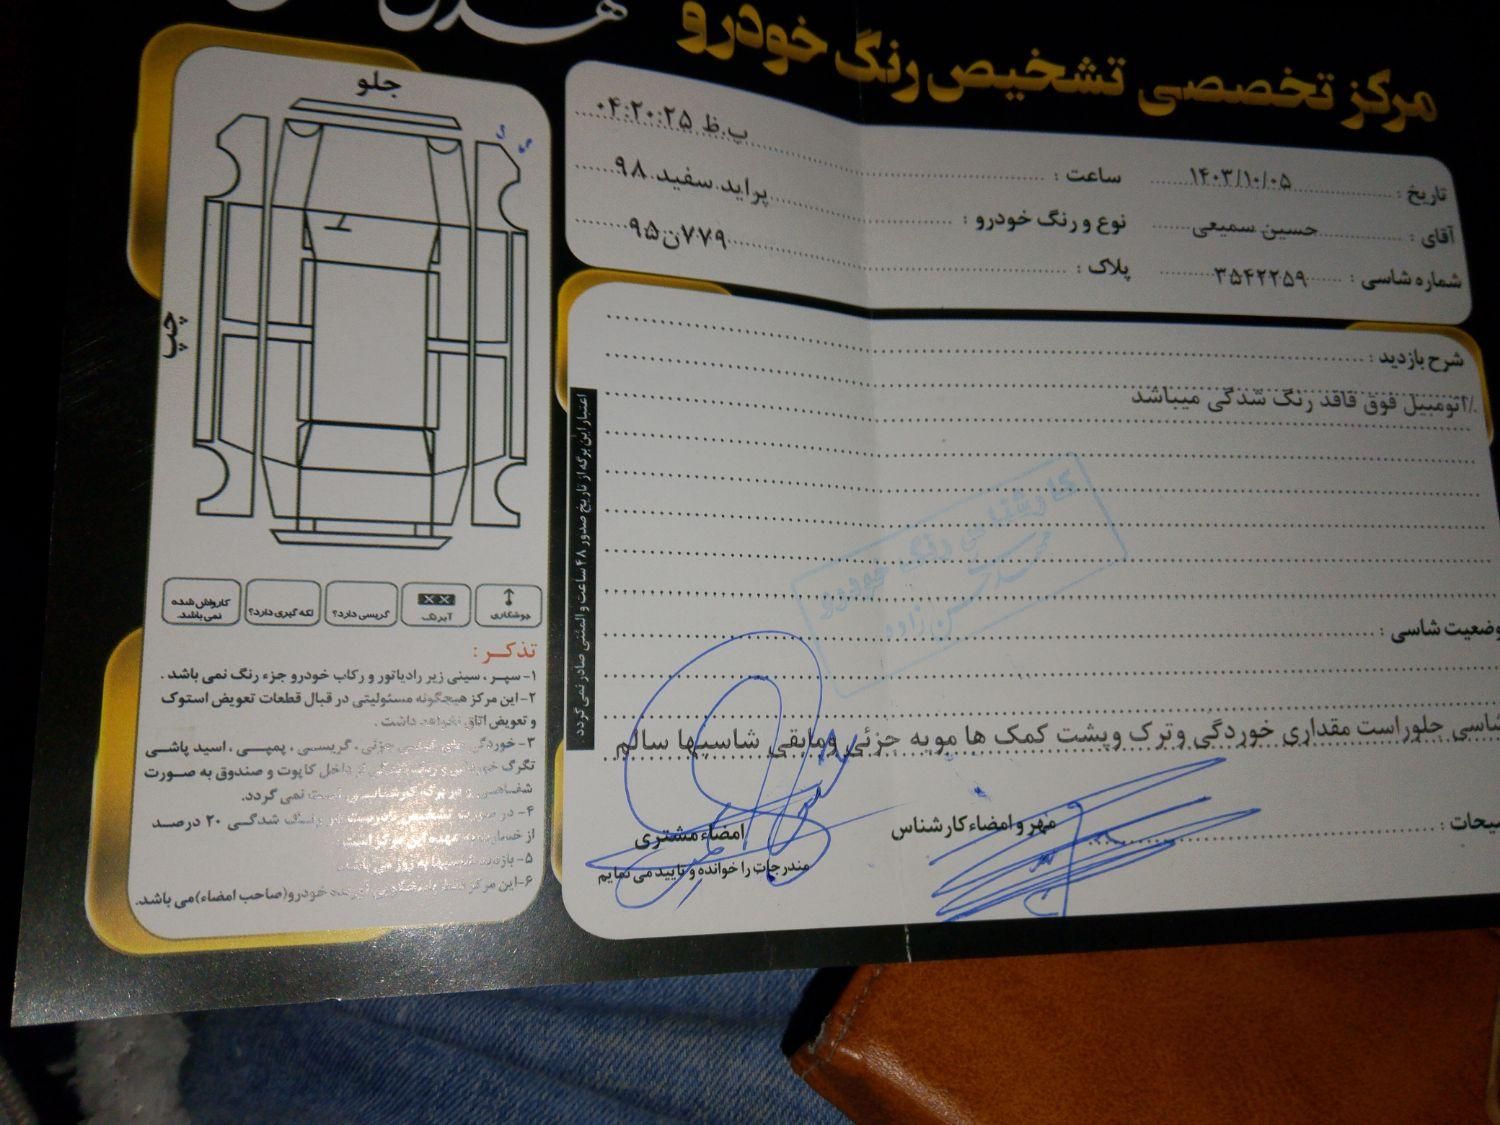 مرکز تخصصی تشخیص رنگ خودرو
تاریخ : ۱۴۰۳/۱۰/۰۵ ساعت : ۰۴:۲۰:۲۵ ب.ظ
آقای : حسین سمیعی نوع و رنگ خودرو : پراید سفید ۹۸
شماره شاسی : ۳۵۴۲۲۵۹ پلاک : ۷۷۹ن۹۵
شرح بازدید :
٪اتومبیل فوق فاقد رنگ شدگی میباشد
کارشناسی رنگ خودرو
وضعیت شاسی :
شاسی جلوراست مقداری خوردگی وترک وپشت کمک ها مویه جزئی ومابقی شاسیها سالم
مهر و امضاء کارشناس
امضاء مشتری
مندرجات را خوانده و تایید می نمایم
اعتبار این برگه از تاریخ صدور ۴۸ ساعت و المثنی صادر نمی گردد
جلو
چپ
جوشکاری
آبرنگ
گریسی دارد؟
لکه گیری دارد؟
کارواش شده نمی باشد.
تذکر :
۱- سپر ، سینی زیر رادیاتور و رکاب خودرو جزء رنگ نمی باشد .
۲- این مرکز هیچگونه مسئولیتی در قبال قطعات تعویض استوک
و تعویض اتاق نخواهد داشت .
۳- خوردگی های جزئی ، گریسی ، پمپی ، اسید پاشی
تگرگ داخل کاپوت و صندوق به صورت
شفاهی نمی گردد.
۴- در صورت رنگ شدگی ۲۰ درصد
از
۵- بازدید
۶- این مرکز خودرو(صاحب امضاء)می باشد.